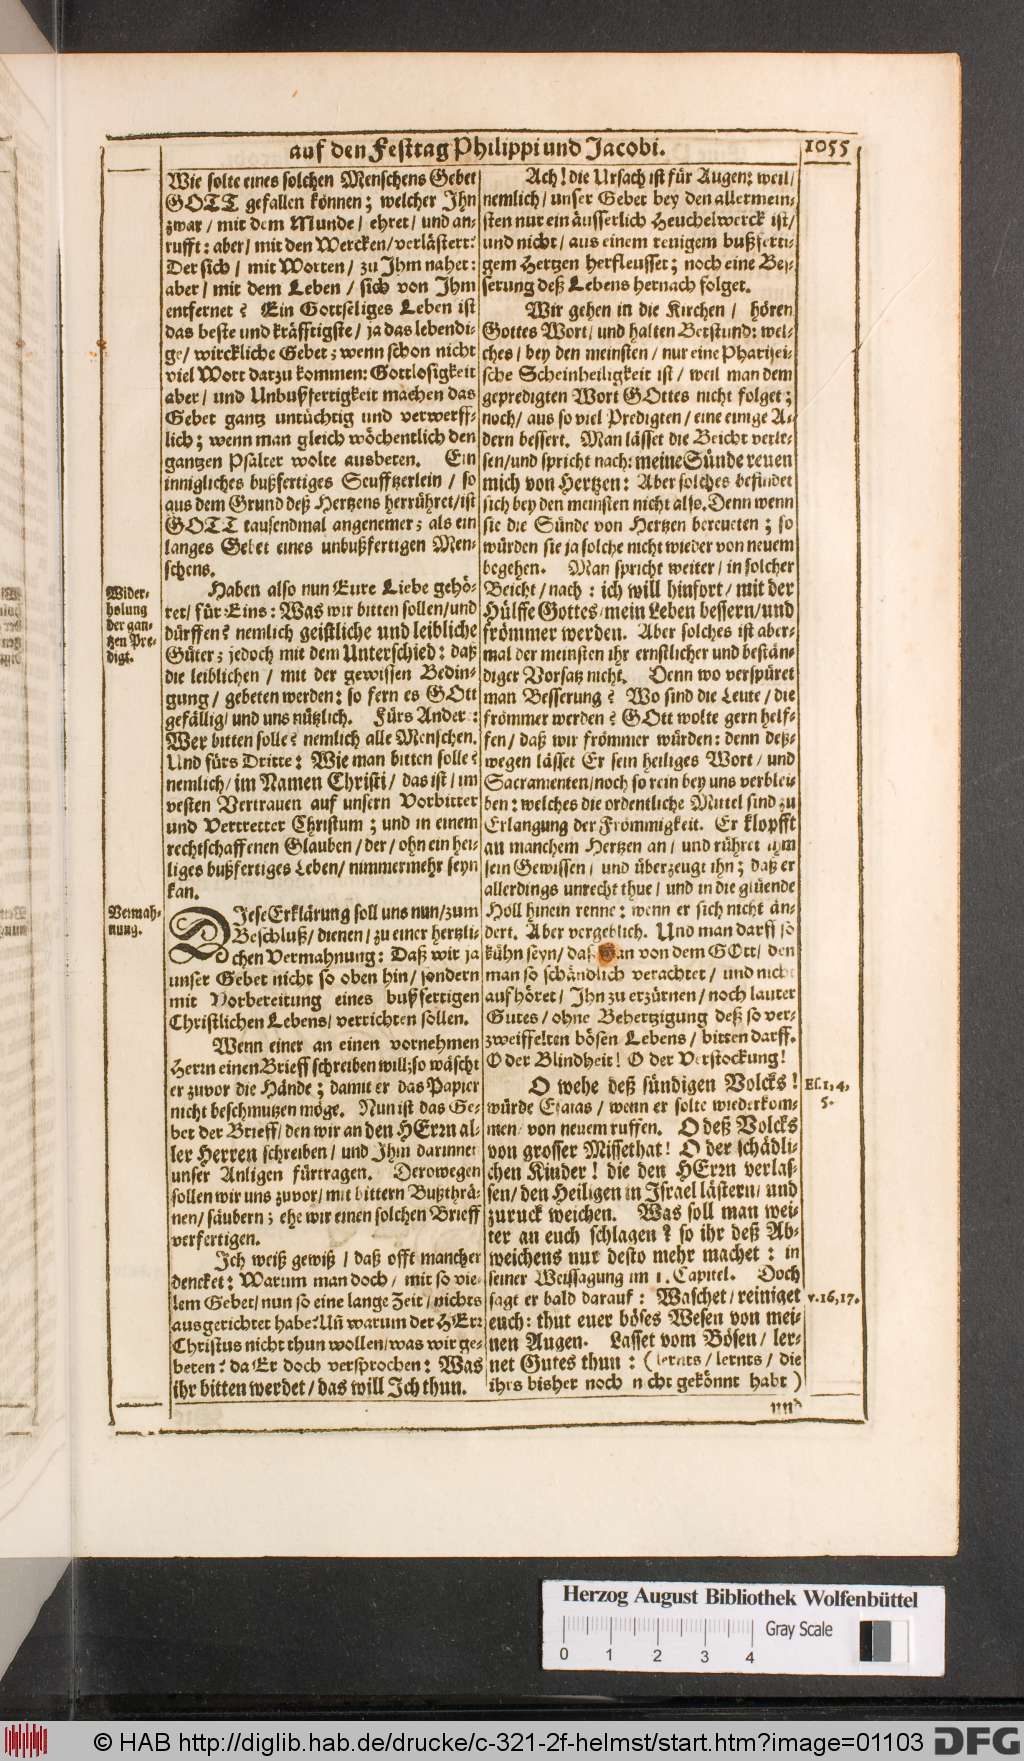 auf den Festtag Philippi und Jacobi.
1055
Wie solte eines solchen Menschens Gebet
GOTT gefallen können; welcher Ihn
zwar / mit dem Munde / ehret / und an-
rufft: aber / mit den Wercken / verlästert?
Der sich / mit Worten / zu Ihm nahet:
aber / mit dem Leben / sich von Ihm
entfernet? Ein Gottseliges Leben ist
das beste und kräfftigste / ja das lebendi-
ge / wirckliche Gebet; wenn schon nicht
viel Wort darzu kommen: Gottlosigkeit
aber / und Unbußfertigkeit machen das
Gebet gantz untüchtig und verwerff-
lich; wenn man gleich wöchentlich den
gantzen Psalter wolte ausbeten. Ein
innigliches bußfertiges Seufftzerlein / so
aus dem Grund deß Hertzens herrühret / ist
GOTT tausendmal angenemer; als ein
langes Gebet eines unbußfertigen Men-
schens.
Wider-
holung
der gan-
tzen Pre-
digt.
Haben also nun Eure Liebe gehö-
ret / für Eins: Was wir bitten sollen / und
dürffen? nemlich geistliche und leibliche
Güter; jedoch mit dem Unterschied: daß
die leiblichen / mit der gewissen Bedin-
gung / gebeten werden: so fern es GOtt
gefällig / und uns nützlich. Fürs Ander:
Wer bitten solle? nemlich alle Menschen.
Und fürs Dritte: Wie man bitten solle?
nemlich / im Namen Christi / das ist / im
vesten Vertrauen auf unsern Vorbitter
und Vertretter Christum; und in einem
rechtschaffenen Glauben / der / ohn ein hei-
liges bußfertiges Leben / nimmermehr seyn
kan.
Vermah-
nung.
DIese Erklärung soll uns nun / zum
Beschluß / dienen / zu einer hertzli-
chen Vermahnung: Daß wir ja
unser Gebet nicht so oben hin / sondern
mit Vorbereitung eines bußfertigen
Christlichen Lebens / verrichten sollen.
Wenn einer an einen vornehmen
Herrn einen Brieff schreiben will; so wäscht
er zuvor die Hände; damit er das Papier
nicht beschmutzen möge. Nun ist das Ge-
bet der Brieff / den wir an den HErrn al-
ler Herren schreiben / und Ihm darinnen
unser Anligen fürtragen. Derowegen
sollen wir uns zuvor / mit bittern Bußthrä-
nen / säubern; ehe wir einen solchen Brieff
verfertigen.
Ich weiß gewiß / daß offt mancher
dencket: Warum man doch / mit so vie-
lem Gebet / nun so eine lange Zeit / nichts
ausgerichtet habe? Uñ warum der HErr
Christus nicht thun wollen / was wir ge-
beten? da Er doch versprochen: Was
ihr bitten werdet / das will Ich thun.
Ach! die Ursach ist für Augen: weil /
nemlich / unser Gebet bey den allermein-
sten nur ein äusserlich Heuchelwerck ist /
und nicht / aus einem reuigem bußferti-
gem Hertzen herfleusset; noch eine Bes-
serung deß Lebens hernach folget.
Wir gehen in die Kirchen / hören
Gottes Wort / und halten Betstund: wel-
ches / bey den meinsten / nur eine Pharisei-
sche Scheinheiligkeit ist / weil man dem
gepredigten Wort GOttes nicht folget;
noch / aus so viel Predigten / eine einige A-
dern bessert. Man lässet die Beicht verle-
sen / und spricht nach: meine Sünde reuen
mich von Hertzen: Aber solches befindet
sich bey den meinsten nicht also. Denn wenn
sie die Sünde von Hertzen bereueten; so
würden sie ja solche nicht wieder von neuem
begehen. Man spricht weiter / in solcher
Beicht / nach: ich will hinfort / mit der
Hülffe Gottes / mein Leben bessern / und
frömmer werden. Aber solches ist aber-
mal der meinsten ihr ernstlicher und bestän-
diger Vorsatz nicht. Denn wo verspüret
man Besserung? Wo sind die Leute / die
frömmer werden? GOtt wolte gern helf-
fen / daß wir frömmer würden: denn deß-
wegen lässet Er sein heiliges Wort / und
Sacramenten / noch so rein bey uns verblei-
ben: welches die ordentliche Mittel sind zu
Erlangung der Frömmigkeit. Er klopfft
an manchem Hertzen an / und rühret ihm
sein Gewissen / und überzeugt ihn; daß er
allerdings unrecht thue / und in die glüende
Höll hinein renne: wenn er sich nicht än-
dert. Aber vergeblich. Und man darff so
kühn seyn / daß man von dem GOtt / den
man so schändlich verachtet / und nicht
aufhöret / Ihn zu erzürnen / noch lauter
Gutes / ohne Behertzigung deß so ver-
zweiffelten bösen Lebens / bitten darff.
O der Blindheit! O der Verstockung!
O wehe deß sündigen Volcks!
Es. 1, 4,
5.
würde Esaias / wenn er solte wiederkom-
men / von neuem ruffen. O deß Volcks
von grosser Missethat! O der schädli-
chen Kinder! die den HErrn verlas-
sen / den Heiligen in Israel lästern / und
zuruck weichen. Was soll man wei-
ter an euch schlagen? so ihr deß Ab-
weichens nur desto mehr machet: in
seiner Weissagung im 1. Capitel. Doch
sagt er bald darauf: Waschet / reiniget
v. 16, 17.
euch: thut euer böses Wesen von mei-
nen Augen. Lasset vom Bösen / ler-
net Gutes thun: (lernts / lernts / die
ihrs bisher noch nicht gekönnt habt)
und
Herzog August Bibliothek Wolfenbüttel
Gray Scale
0 1 2 3 4
© HAB http://diglib.hab.de/drucke/c-321-2f-helmst/start.htm?image=01103
DFG